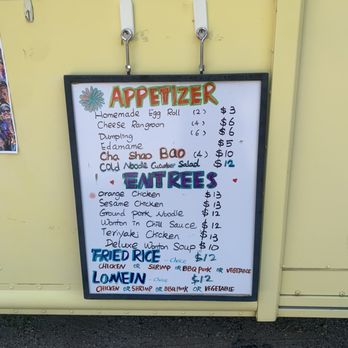 APPETIZER
Homemade Egg Roll (2) $3
Cheese Rangoon (4) $6
Dumpling (6) $6
Edamame $5
Cha Shao Bao (4) $10
Cold Noodle Cucumber Salad $12
ENTREES
Orange Chicken $13
Sesame Chicken $13
Ground Pork Noodle $12
Wonton in Chili Sauce $12
Teriyaki Chicken $13
Deluxe Wonton Soup $10
FRIED RICE - Choice $12
CHICKEN OR SHRIMP OR BBQ Pork OR VEGETABLE
LOMEIN - Choice $12
CHICKEN OR SHRIMP OR BBQ Pork OR VEGETABLE